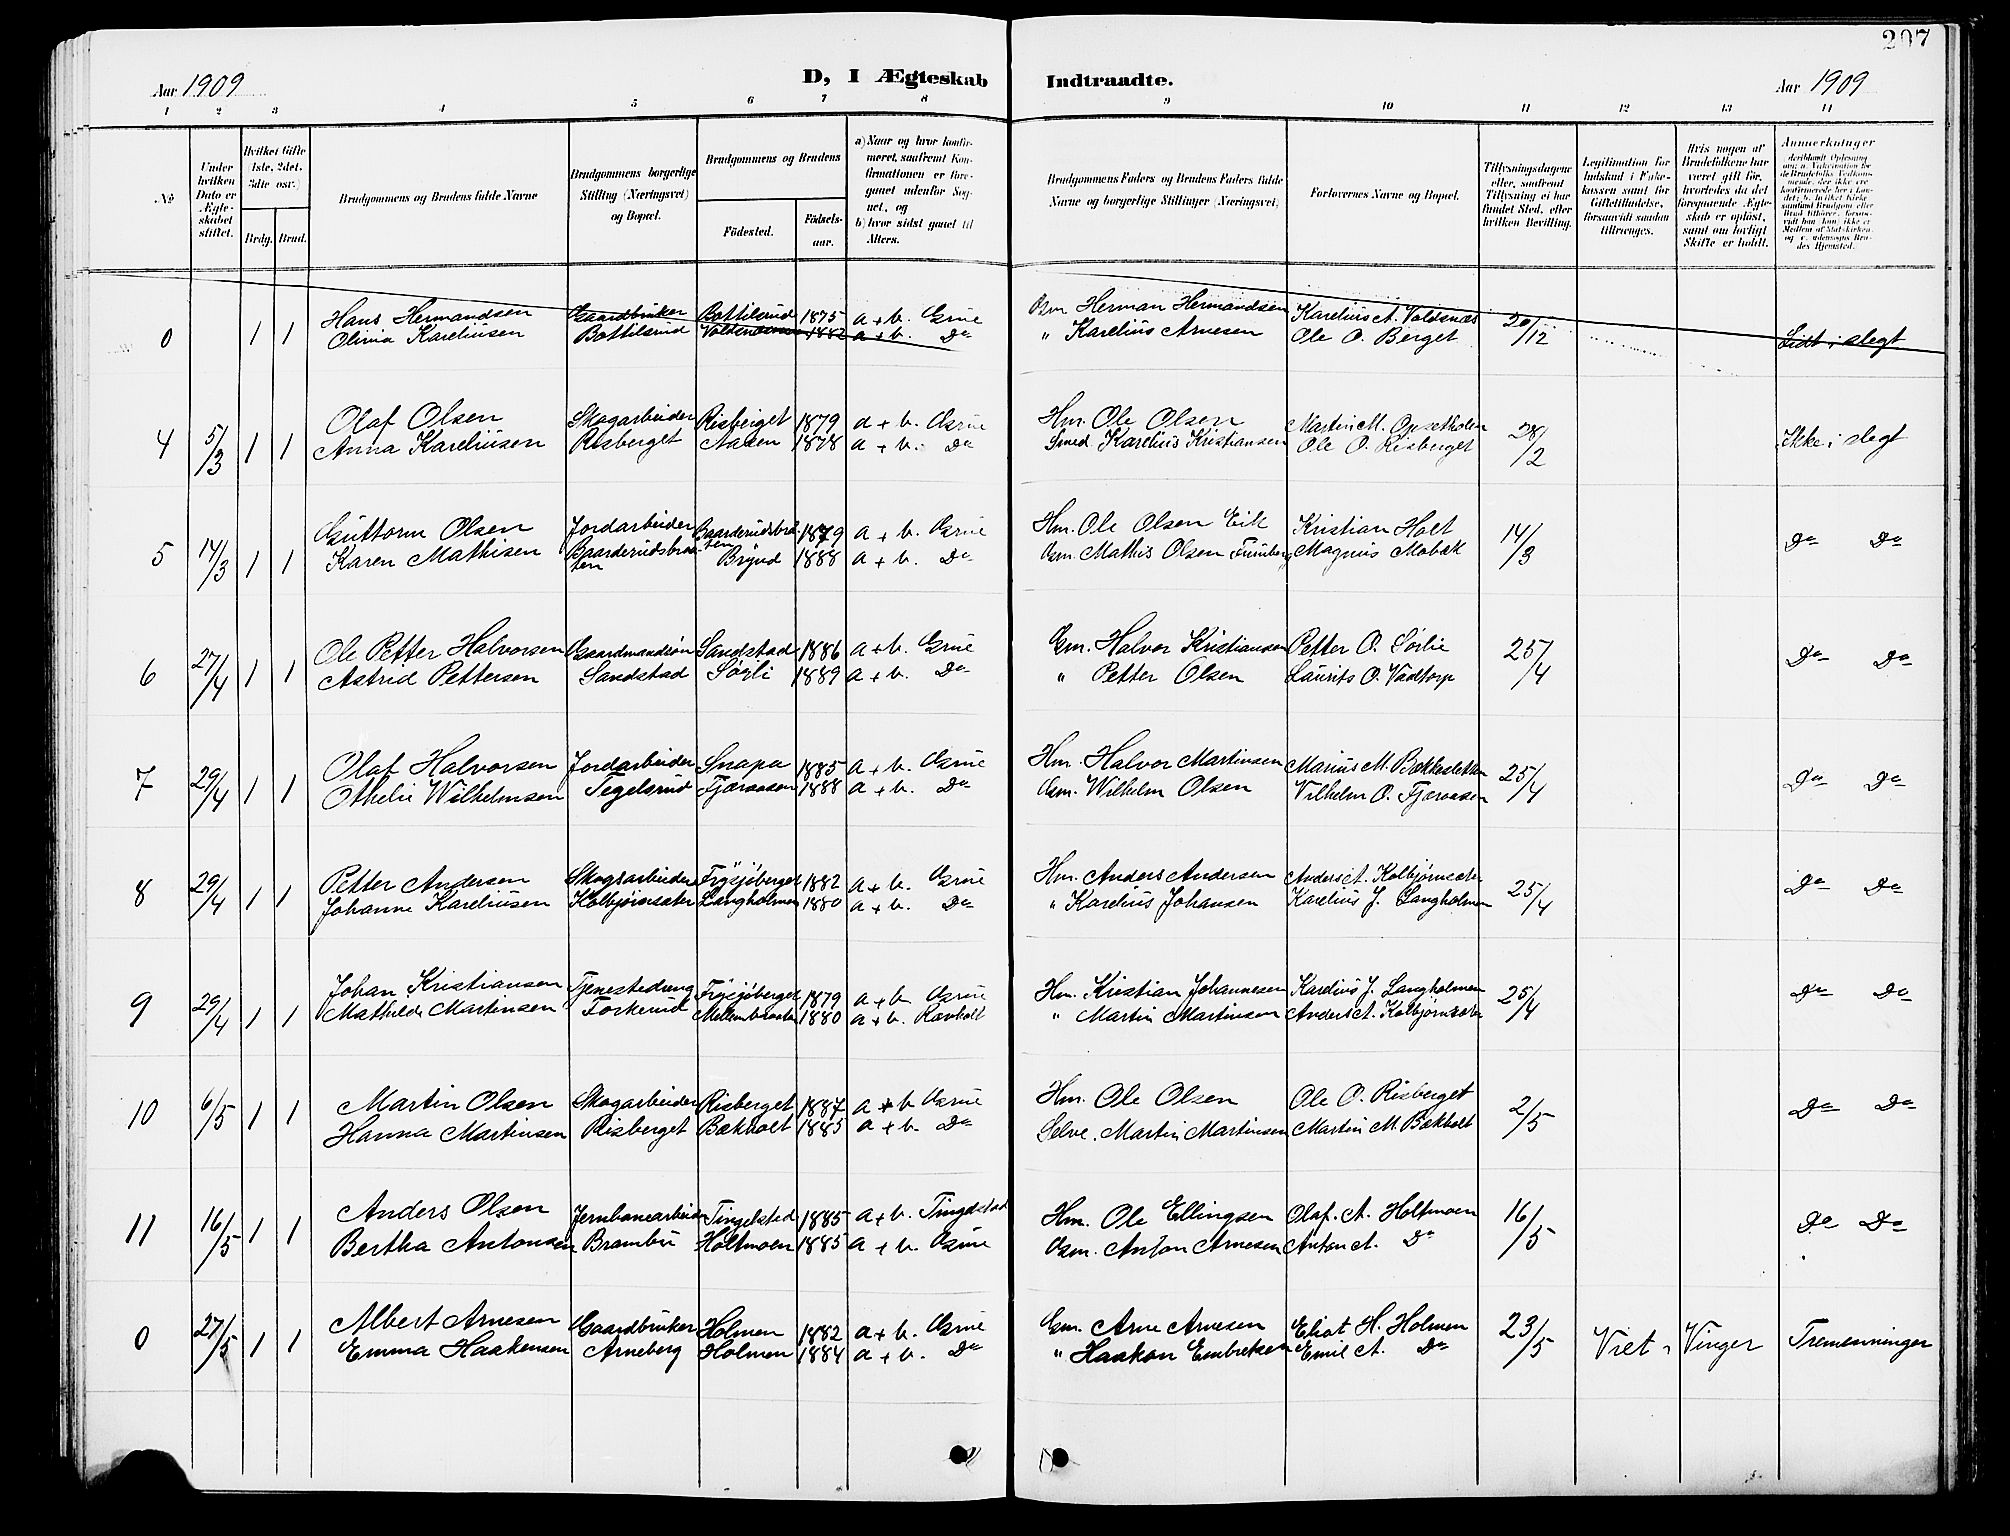 207
Aar 1909 D, I Ægteskab Indtraadte. Aar 1909
1 2 3 4 5 6 7 8 9 10 11 12 13 14
No
Under hvilken Dato er Ægteskabet stiftet.
Hvilket Gifte (1ste, 2det, 3die osv.)
Brdg. Brud.
Brudgommens og Brudens fulde Navne
Brudgommens borgerlige Stilling (Næringsvei) og Bopæl.
Brudgommens og Brudens
Födested. Födsels-aar.
a) Naar og hvor konfirmeret, saafremt Konfirmationen er foregaaet udenfor Sognet, og
b) hvor sidst gaaet til Alters.
Brudgommens Faders og Brudens Faders fulde Navne og borgerlige Stillinger (Næringsvei)
Forlovernes Navne og Bopæl.
Tillysningsdagene eller, saafremt Tillysning ei har fundet Sted, efter hvilken Bevilling.
Legitimation for Indskud i Enkekassen samt for Giftetilladelse, forsaavidt saadan tiltrænges.
Hvis nogen af Brudefolkene har været gift før, hvorledes da det foregaaende Ægteskab er opløst, samt om lovligt Skifte er holdt.
Anmerkninger
0 1 1 Hans Hermandsen Gaardbruker Bottilsrud 1875 a + b. Grue Gm. Herman Hermandsen Karelius A. Voldsnæs 20/12 Lidt i slegt
Olina Kareliusen Bottilsrud 1882 a + b. Do " Karelius Arnesen Ole O. Berget
4 5/3 1 1 Olaf Olsen Skogarbeider Risberget 1879 a + b. Grue Hm. Ole Olsen Martin M. 28/2 Ikke i slegt
Anna Kareliusen Risberget 1878 a + b. Do Smed Karelius Kristiansen Ole O. Risberget
5 14/3 1 1 Guttorm Olsen Jordarbeider Baarderudsbraaten 1879 a + b. Grue Hm. Ole Olsen Eik Kristian Holt 14/3 Do Do
Karen Mathisen Baarderudsbraaten Brynd 1888 a + b. Do Gm. Mathis Olsen Magnus Mobæk
6 27/4 1 1 Ole Petter Halvorsen Gaardmandssön Sandstad 1886 a + b. Grue Gm. Halvor Kristiansen Petter O. Sørlie 25/4 Do Do
Astrid Pettersen Sandstad Sörli 1889 a + b. Do " Petter Olsen Laurits O. Vadtorp
7 29/4 1 1 Olaf Halvorsen Jordarbeider Snapa 1885 a + b. Grue Hm. Halvor Martinsen Marius M. Bækkesletten 25/4 Do Do
Othelie Wilhelmsen Tegelsrud Fjæraasen 1888 a + b. Do Gm. Wilhelm Olsen Vilhelm O. Fjæraasen
8 29/4 1 1 Petter Andersen Skogsarbeider Frysjöberget 1882 a + b. Grue Hm. Anders Andersen Anders A. Kolbjørnsæter 25/4 Do Do
Johanne Kareliusen Kolbjörnsæter Langholmen 1880 a + b. Do " Karelius Johansen Karelius J. Langholmen
9 29/4 1 1 Johan Kristiansen Tjenestedreng Frysjöberget 1879 a + b. Grue Hm. Kristian Johannesen Karelius J. Langholmen 25/4 Do Do
Mathilde Martinsen Torkerud Mellembraaten 1880 a + b. Ravholt " Martin Martinsen Anders A. Kolbjørnsæter
10 6/5 1 1 Martin Olsen Skogarbeider Risberget 1887 a + b Grue Hm. Ole Olsen Ole O. Risberget 2/5 Do Do
Hanna Martinsen Risberget Bækholt 1885 a + b. Do Selve. Martin Martinsen Martin M. Bækholt
11 16/5 1 1 Anders Olsen Jernbanearbeider Tingelstad 1885 a + b. Tingelstad Hm. Ole Ellingsen Olaf A. Holtmoen 16/5 Do Do
Bertha Antonsen Brambu Holtmoen 1885 a + b. Grue Gm. Anton Arnesen Anton A. Do
0 27/5 1 1 Albert Arnesen Gaardbruker Holmen 1882 a + b. Grue Gm. Arne Arnesen Eliat H. Holmen 23/5 Viet i Vinger Tremenninger
Emma Haakensen Arneberg Holmen 1884 a + b. Do " Haakon Embretsen Emil A. Do